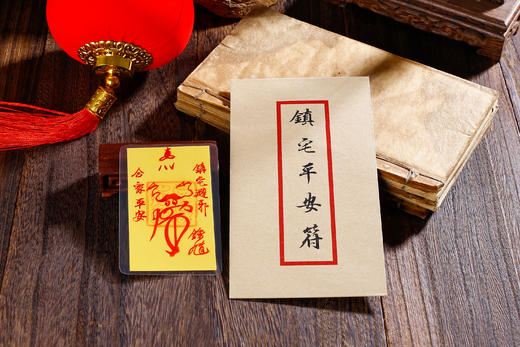 鎮宅平安符
鎮宅避邪
合家平安